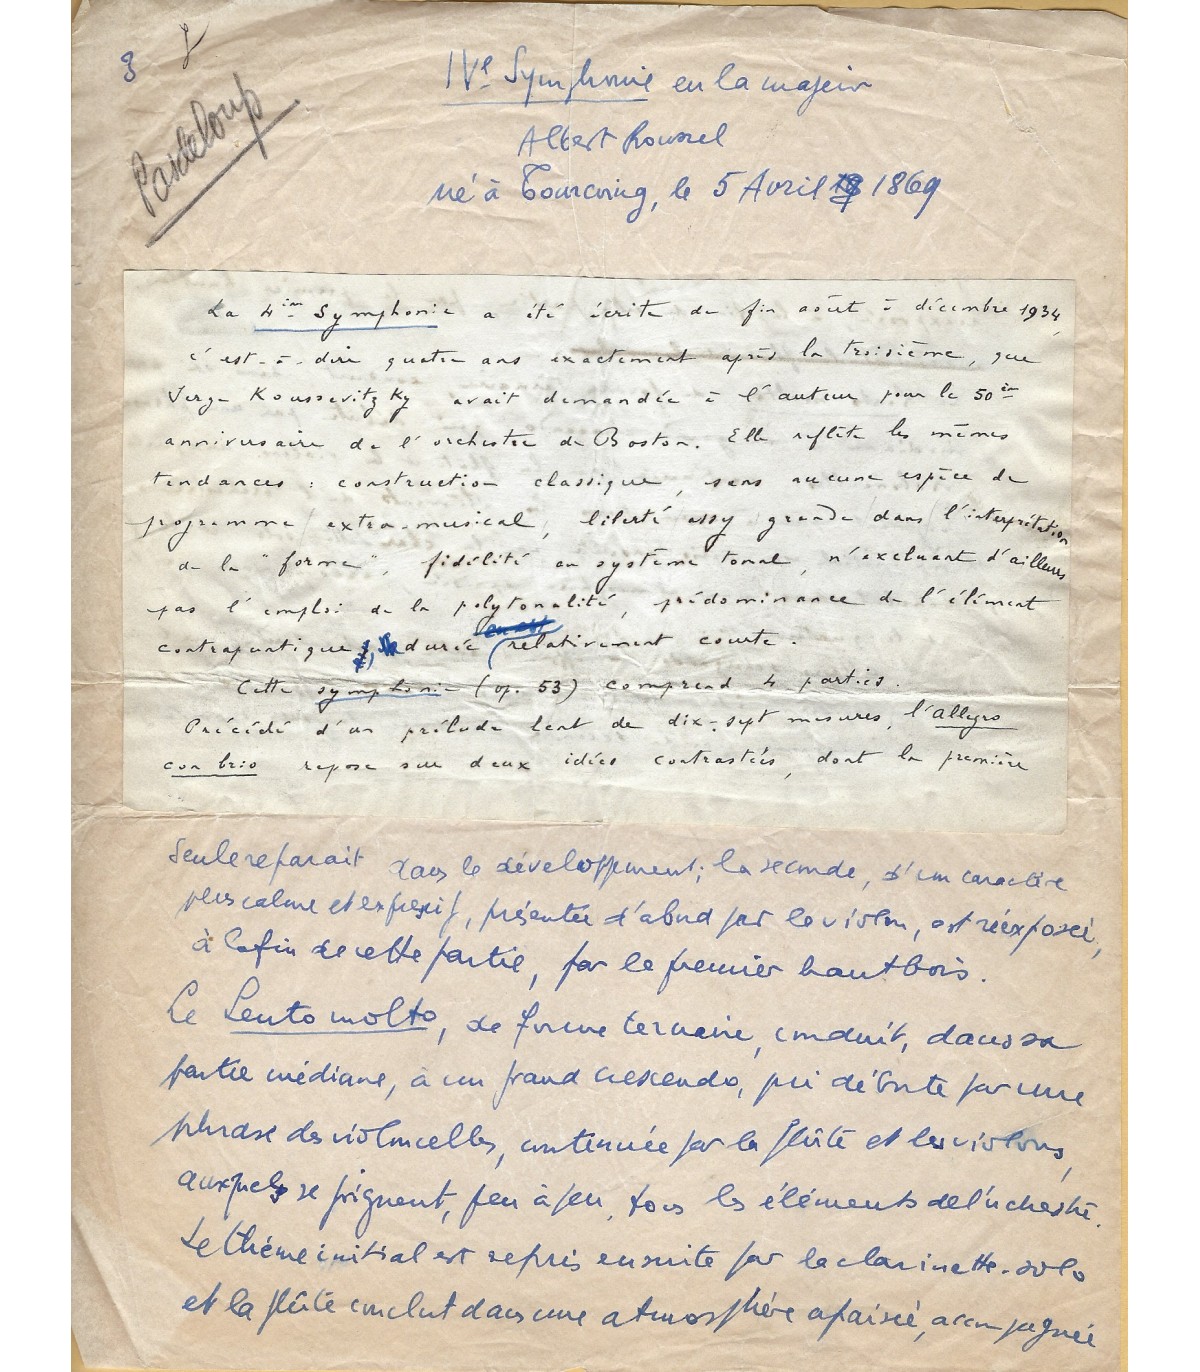 3
Pasdeloup
IVe Symphonie en la majeur
Albert Roussel
né à Tourcoing, le 5 Avril 1869
La 4ième Symphonie a été écrite de fin août à décembre 1934,
c'est-à-dire quatre ans exactement après la troisième, que
Serge Koussevitzky avait demandée à l'auteur pour le 50ème
anniversaire de l'orchestre de Boston. Elle reflète les mêmes
tendances : construction classique, sans aucune espèce de
programme extra-musical, liberté assez grande dans l'interprétation
de la "forme", fidélité au système tonal, n'excluant d'ailleurs
pas l'emploi de la polytonalité, prédominance de l'élément
contrapuntique, durée relativement courte.
Cette symphonie (op. 53) comprend 4 parties.
Précédé d'un prélude lent de dix-sept mesures, l'allegro
con brio repose sur deux idées contrastées, dont la première
seule reparait dans le développement; la seconde, d'un caractère
plus calme et expressif, présentée d'abord par le violon, est réexposée,
à la fin de cette partie, par le premier hautbois.
Le Lento molto, de forme ternaire, conduit, dans sa
partie médiane, à un grand crescendo, qui débute par une
phrase des violoncelles, continuée par la flûte et les violons,
auxquels se joignent, peu à peu, tous les éléments de l'orchestre.
Le thème initial est repris ensuite par la clarinette-solo
et la flûte conclut dans une atmosphère apaisée, accompagnée